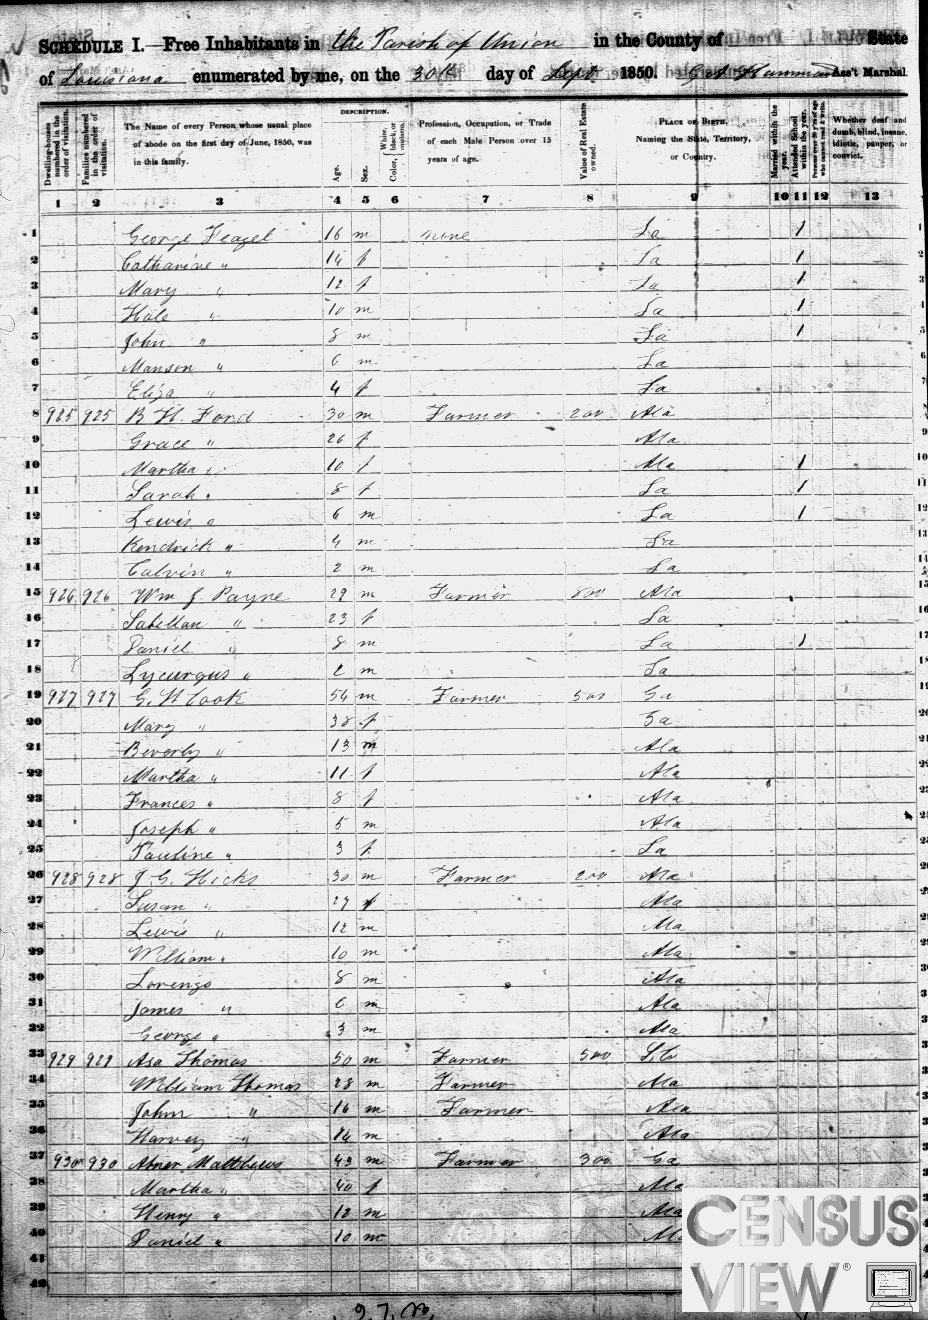 SCHEDULE I.—Free Inhabitants in the Parish of Union in the County of State
of Louisiana enumerated by me, on the 30th day of Sept 1850. Ass't Marshal.
Dwelling-houses numbered in the order of visitation.
Families numbered in the order of visitation.
The Name of every Person whose usual place of abode on the first day of June, 1850, was in this family.
DESCRIPTION.
Age.
Sex.
Color, White, black, or mulatto.
Profession, Occupation, or Trade of each Male Person over 15 years of age.
Value of Real Estate owned.
PLACE OF BIRTH. Naming the State, Territory, or Country.
Married within the year.
Attended School within the year.
Persons over 20 y'rs of age who cannot read & write.
Whether deaf and dumb, blind, insane, idiotic, pauper, or convict.
1 2 3 4 5 6 7 8 9 10 11 12 13
1 George Feazel 16 m none La 1
2 Catharine " 14 f La 1
3 Mary " 12 f La 1
4 Hale " 10 m La 1
5 John " 8 m La 1
6 Manson " 6 m La
7 Eliza " 4 f La
8 925 925 B H. Ford 30 m Farmer 200 Ala
9 Grace " 26 f Ala
10 Martha " 10 f Ala 1
11 Sarah " 8 f La 1
12 Lewis " 6 m La 1
13 Kendrick " 4 m La
14 Calvin " 2 m La
15 926 926 Wm J. Payne 29 m Farmer 800 Ala
16 " 23 f La
17 Daniel " 8 m La 1
18 Lycurgus " 2 m La
19 927 927 G. W Cook 54 m Farmer 500 Ga
20 Mary " 38 f Ga
21 Beverly " 13 m Ala
22 Martha " 11 f Ala
23 Frances " 8 f Ala
24 Joseph " 5 m Ala
25 Pauline " 3 f La
26 928 928 J G. Hicks 30 m Farmer 200 Ala
27 Susan " 27 f Ala
28 Lewis " 12 m Ala
29 William " 10 m Ala
30 Lorenzo 8 m Ala
31 James " 6 m Ala
32 George " 3 m Ala
33 929 929 Asa Thomas 50 m Farmer 500
34 William Thomas 28 m Farmer Ala
35 John " 16 m Farmer Ala
36 Harvey " 14 m Ala
37 930 930 Abner Matthews 43 m Farmer 300 Ga
38 Martha " 40 f Ala
39 Henry " 12 m Ala
40 Daniel " 10 m Al
41
42
CENSUS
VIEW®